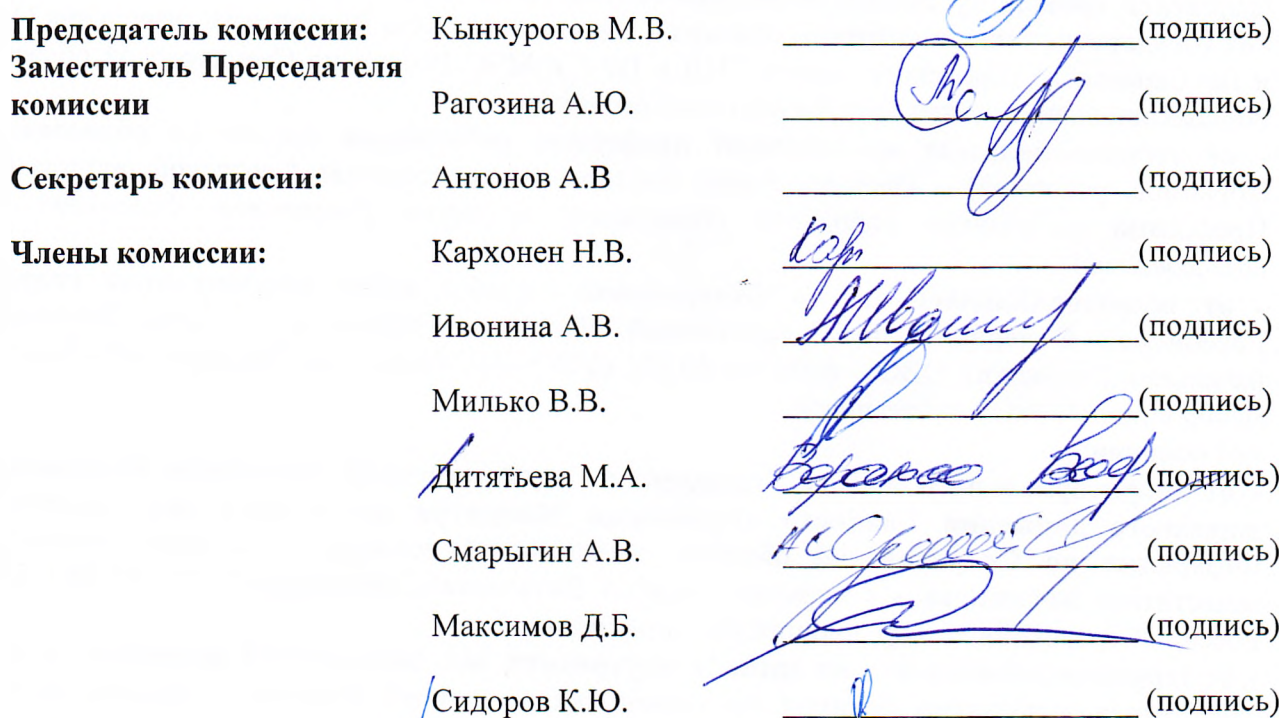 Председатель комиссии: Кынкурогов М.В. (подпись)
Заместитель Председателя
комиссии Рагозина А.Ю. (подпись)
Секретарь комиссии: Антонов А.В (подпись)
Члены комиссии: Кархонен Н.В. (подпись)
Ивонина А.В. (подпись)
Милько В.В. (подпись)
Дитятьева М.А. (подпись)
Смарыгин А.В. (подпись)
Максимов Д.Б. (подпись)
Сидоров К.Ю. (подпись)